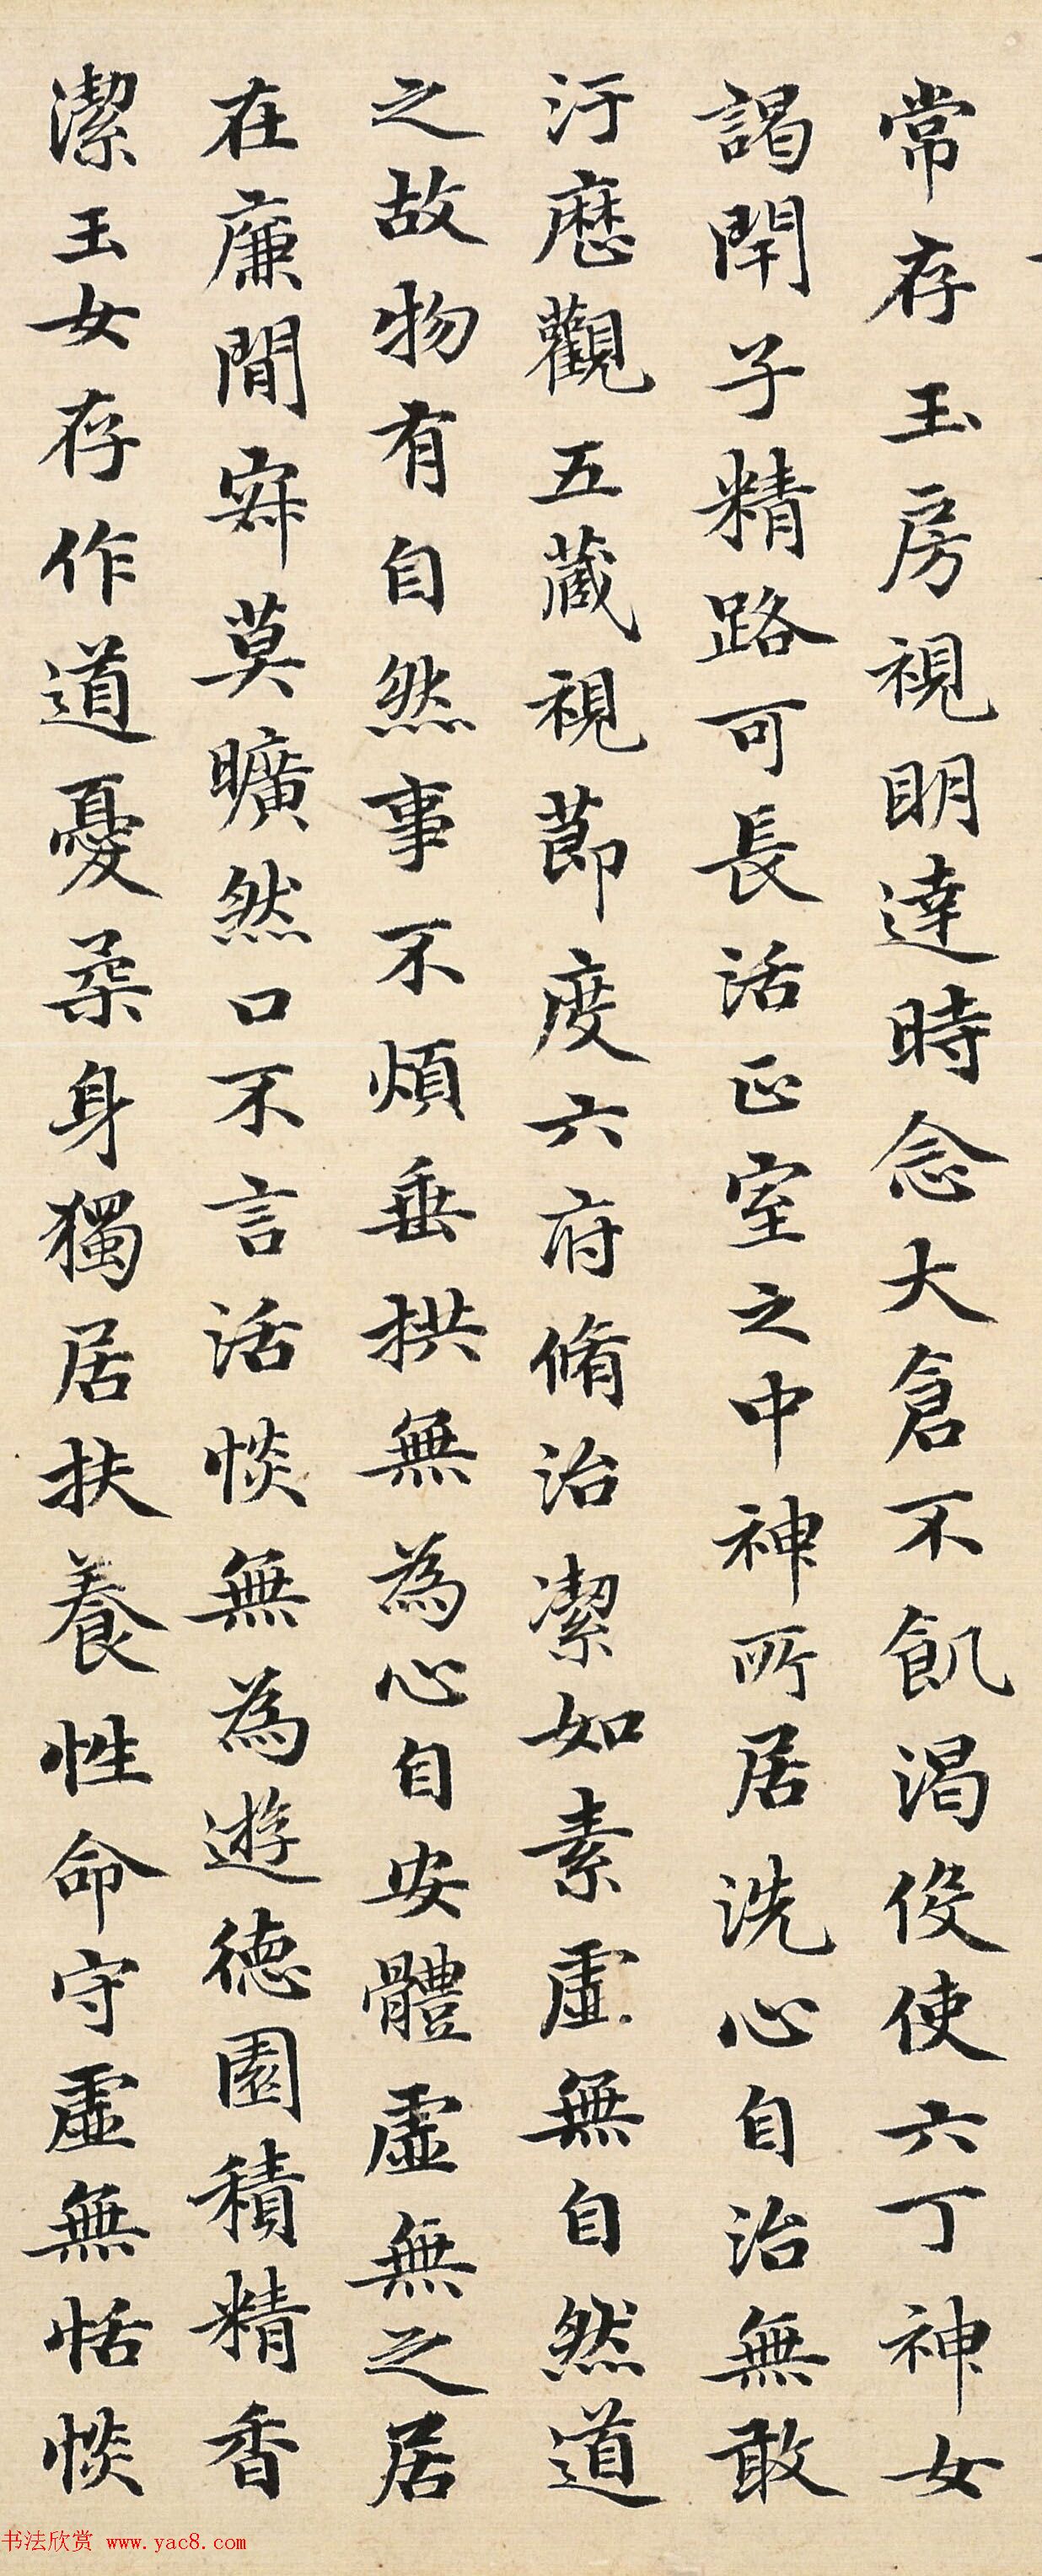 常存玉房視明達時念大倉不飢渴役使六丁神女
謁閇子精路可長活正室之中神所居洗心自治無敢
汙歷觀五藏視節度六府脩治潔如素虛無自然道
之故物有自然事不煩垂拱無為心自安體虛無之居
在廉間寂莫曠然口不言活惔無為遊德園積精香
潔玉女存作道憂柔身獨居扶養性命守虛無恬惔
书法欣赏 www.yac8.com